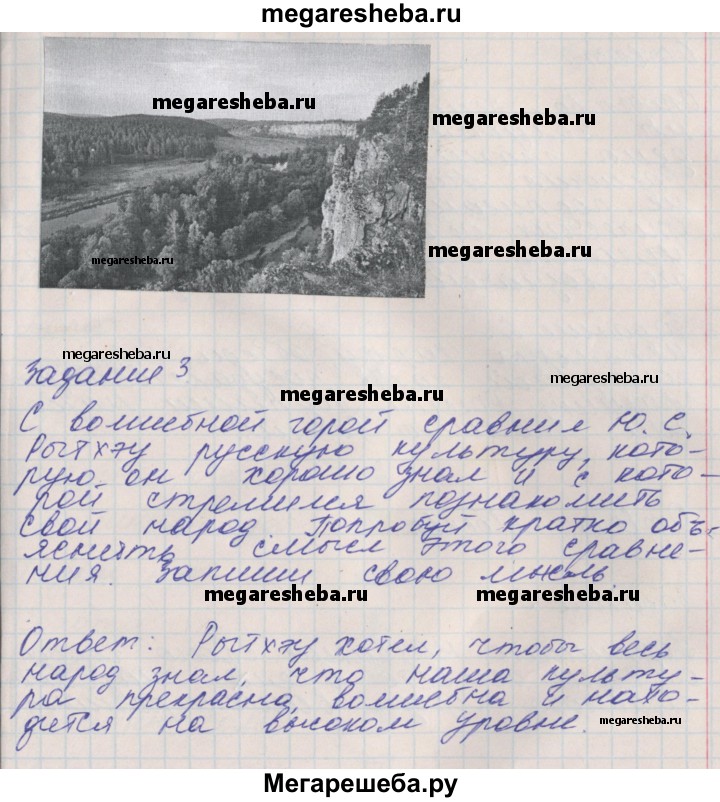 megaresheba.ru
megaresheba.ru
megaresheba.ru
megaresheba.ru
megaresheba.ru
megaresheba.ru
Задание 3
megaresheba.ru
megaresheba.ru
С волшебной горой сравнил Ю. С.
Рытхэу русскую культуру, кото-
рую он хорошо знал и с кото-
рой стремился познакомить
свой народ. Попробуй кратко объ-
яснить смысл этого сравне-
ния. Запиши свою мысль.
megaresheba.ru
megaresheba.ru
Ответ: Рытхэу хотел, чтобы весь
народ знал, что наша культу-
ра прекрасна, волшебна и нахо-
дится на высоком уровне.
megaresheba.ru
Мегарешеба.ру